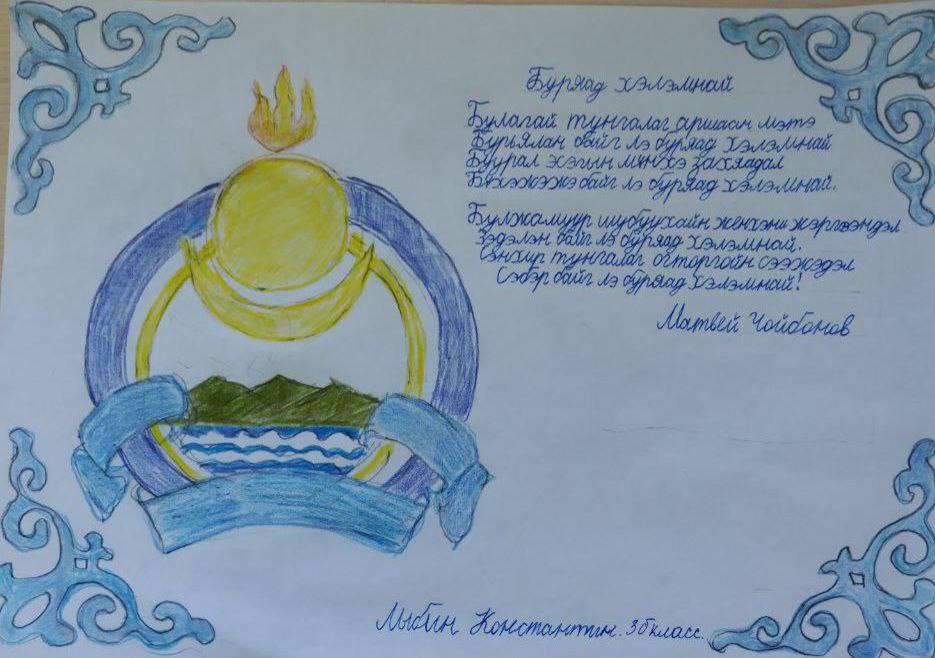 Буряад хэлэмнай
Булагай тунгалаг аршаан мэтэ
Бурьялан байг лэ буряад хэлэмнай
Буурал эсэгын мүнхэ захяадал
Бүхэжэжэ байг лэ буряад хэлэмнай.
Булжамуур шубуухайн жэнхэни жэргээндэл
Зэдэлэн байг лэ буряад хэлэмнай.
Сэнхир тунгалаг огторгойн сээжэдэл
Сэбэр байг лэ буряад хэлэмнай!
Матвей Чойбонов
Лыбин Константин. 3б класс.